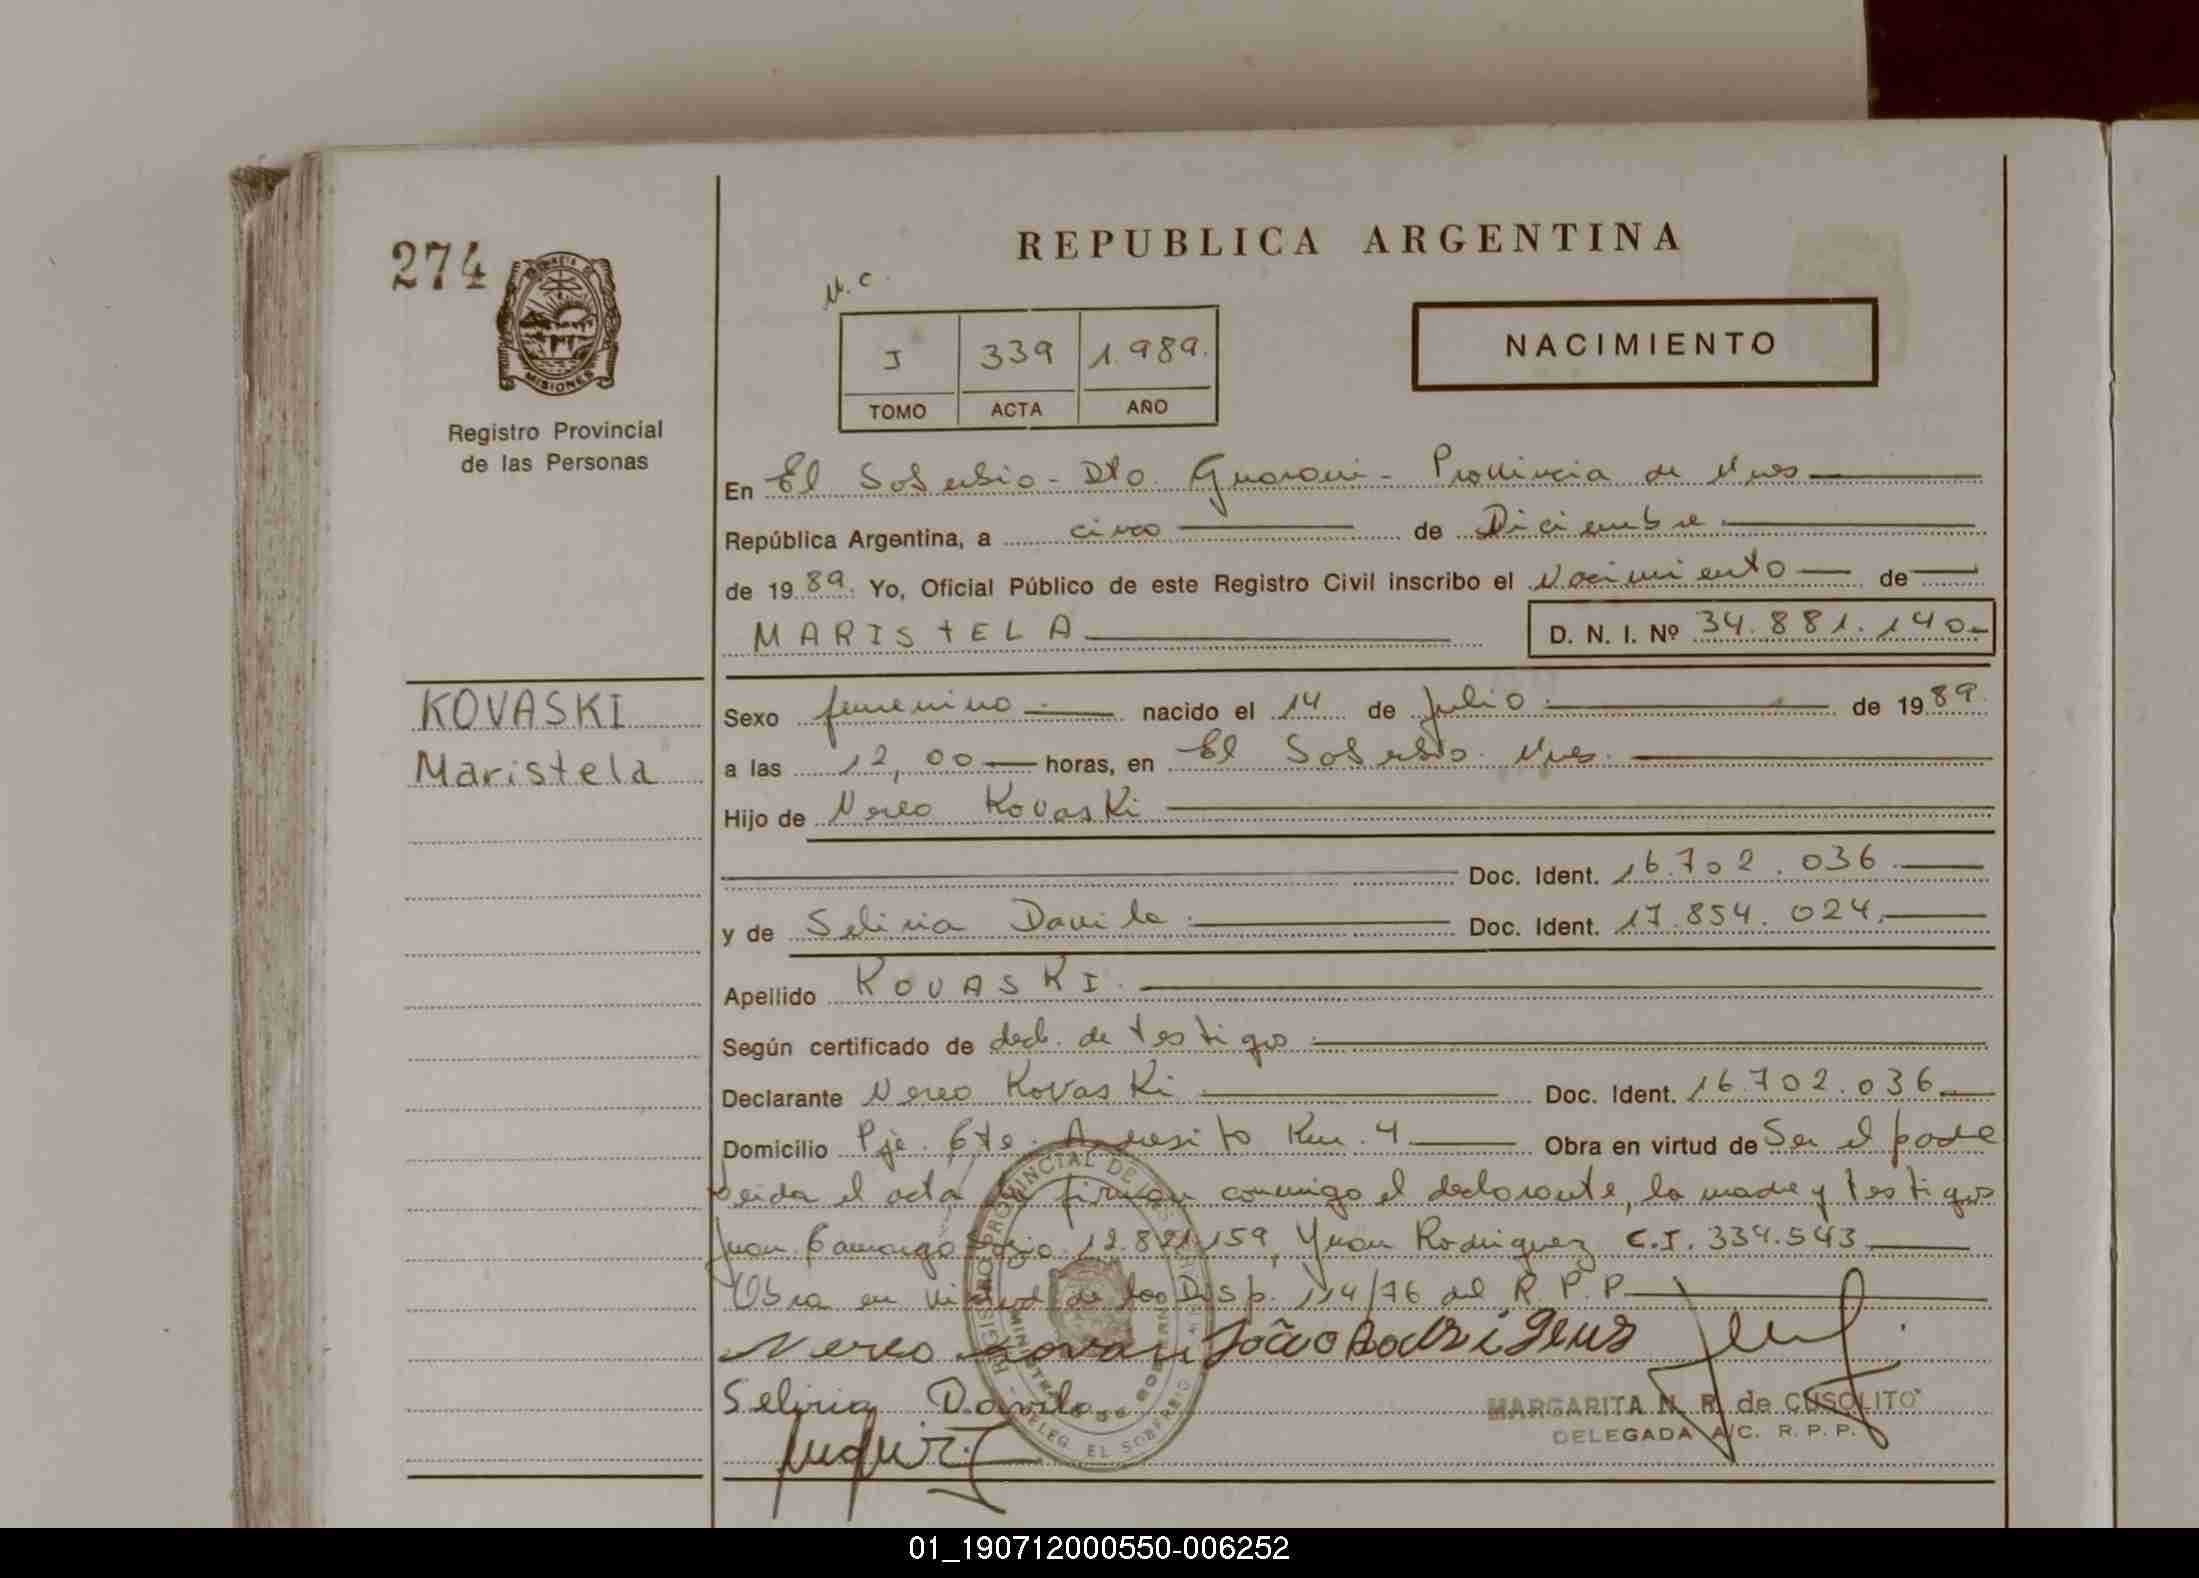 REPUBLICA ARGENTINA
274
PROVINCIA DE
MISIONES
Registro Provincial
de las Personas
N.C.
J 339 1.989.
TOMO ACTA AÑO
NACIMIENTO
En El Soberbio - Dto. Guarani - Provincia de Mnes
República Argentina, a cinco de Diciembre
de 1989. Yo, Oficial Público de este Registro Civil inscribo el Nacimiento de
MARIStELA D. N. I. Nº 34.881.140.-
KOVASKI
Maristela
Sexo femenino nacido el 14 de Julio de 1989.
a las 12,00 horas, en El Soberbio. Mnes.
Hijo de Nereo KovasKi
Doc. Ident. 16.702.036
y de Seliria Davila Doc. Ident. 17.854.024.
Apellido KOVASKI.
Según certificado de decl. de testigos
Declarante Nereo KovasKi Doc. Ident. 16.702.036
Domicilio Pje. Cte. Andresito Km. 4 Obra en virtud de Ser el padre
Leida el acta la firman conmigo el declarante, la madre y testigos
Juan Camargo 12.821.159, Yuan Rodriguez C.I. 334.543
Obra en virtud de los Disp. 114/76 del R.P.P.
Nereo Kovaski João Rodrigeus
Seliria Davila
MARGARITA N. R. de CUSOLITO
DELEGADA A/C. R. P. P.
DELEG. EL SOBERBIO
01_190712000550-006252